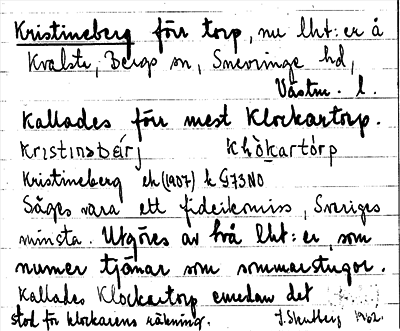 Kristineberg förr torp, nu lht:er å
Kvalsta, Bergs sn, Snevringe hd,
Västm. l.
Kallades förr mest Klockartorp.
Kristinəbærj Klòkartórp
Kristineberg ek (1907) h G73N0
Säges vara ett fideikomiss, Sveriges
minsta. Utgöres av två lht:er, som
numer tjänar som sommarstugor.
Kallades Klockartorp emedan det
stod för klockarens räkning. 1962.